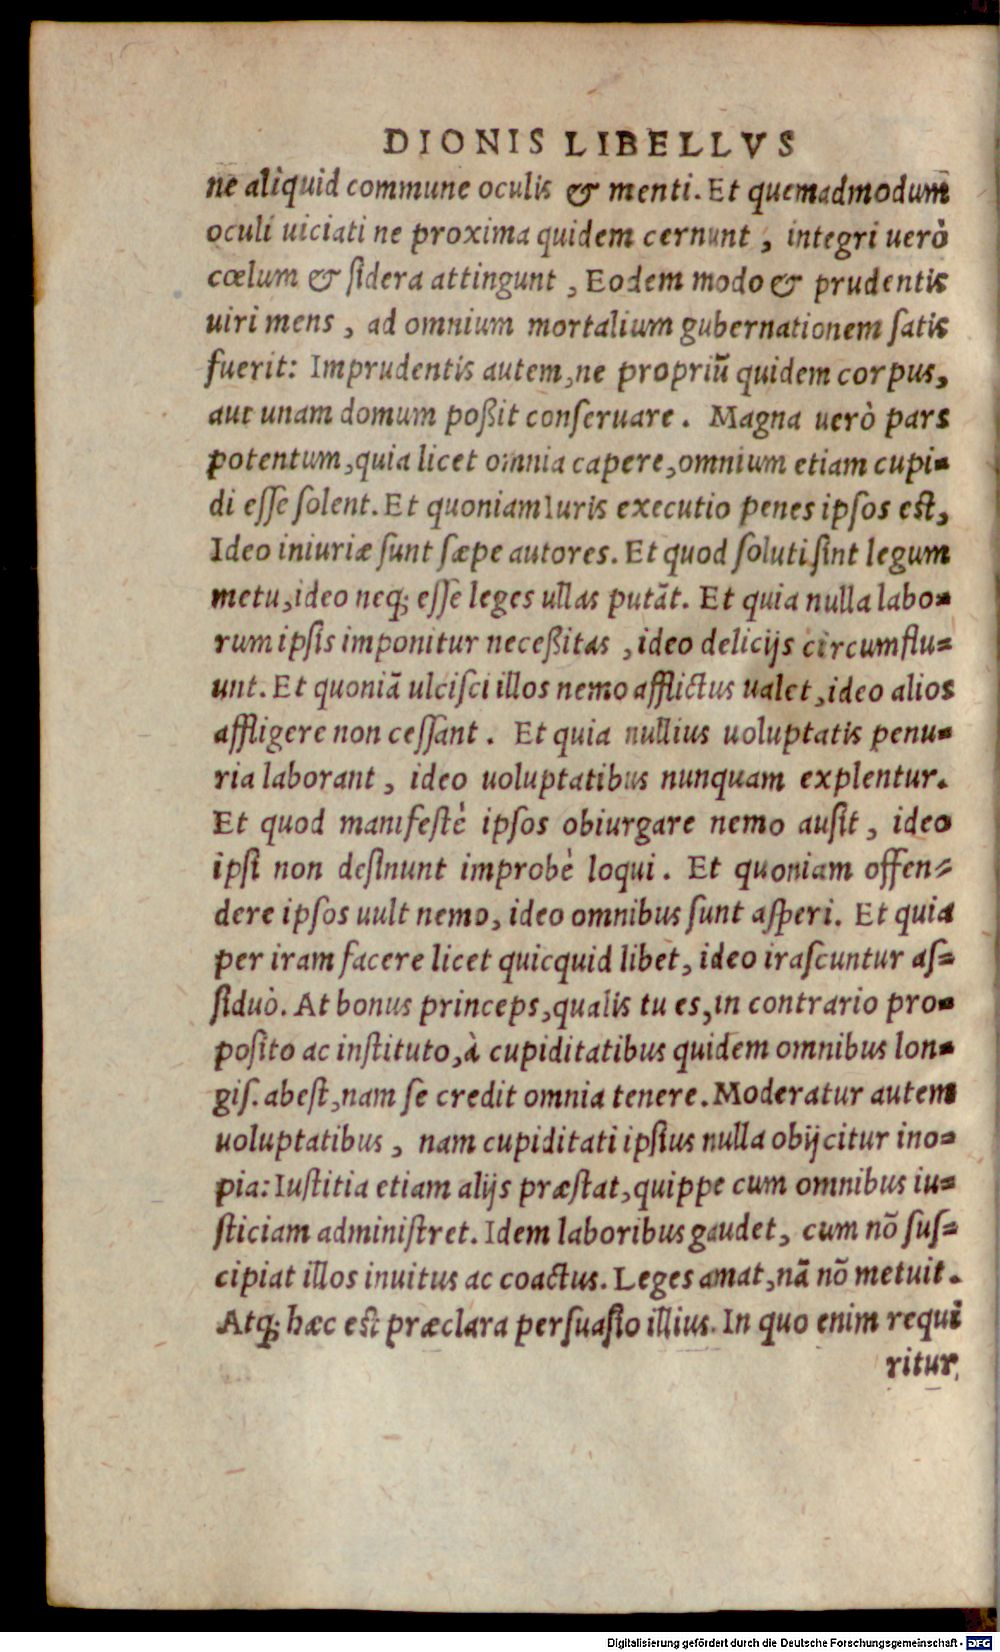 DIONIS LIBELLVS
ne aliquid commune oculis & menti. Et quemadmodum
oculi uiciati ne proxima quidem cernunt, integri uerò
cœlum & ſidera attingunt, Eodem modo & prudentis
uiri mens, ad omnium mortalium gubernationem ſatis
fuerit: Imprudentis autem, ne propriũ quidem corpus,
aut unam domum poßit conſeruare. Magna uerò pars
potentum, quia licet omnia capere, omnium etiam cupi=
di eſſe ſolent. Et quoniam Iuris executio penes ipſos eſt,
Ideo iniuriæ ſunt ſæpe autores. Et quod ſoluti ſint legum
metu, ideo neq; eſſe leges ullas putãt. Et quia nulla labo=
rum ipſis imponitur neceßitas, ideo delicijs circumflu=
unt. Et quoniã ulciſci illos nemo afflictus ualet, ideo alios
affligere non ceſſant. Et quia nullius uoluptatis penu=
ria laborant, ideo uoluptatibus nunquam explentur.
Et quod manifeſtè ipſos obiurgare nemo auſit, ideo
ipſi non deſinunt improbè loqui. Et quoniam offen=
dere ipſos uult nemo, ideo omnibus ſunt aſperi. Et quia
per iram facere licet quicquid libet, ideo iraſcuntur aſ=
ſiduò. At bonus princeps, qualis tu es, in contrario pro=
poſito ac inſtituto, à cupiditatibus quidem omnibus lon=
giſ. abeſt, nam ſe credit omnia tenere. Moderatur autem
uoluptatibus, nam cupiditati ipſius nulla obijcitur ino=
pia: Iuſtitia etiam alijs præſtat, quippe cum omnibus iu=
ſticiam adminiſtret. Idem laboribus gaudet, cum nõ ſuſ=
cipiat illos inuitus ac coactus. Leges amat, nã nõ metuit.
Atq; hæc eſt præclara perſuaſio illius. In quo enim requi
ritur,
Digitalisierung gefördert durch die Deutsche Forschungsgemeinschaft - DFG